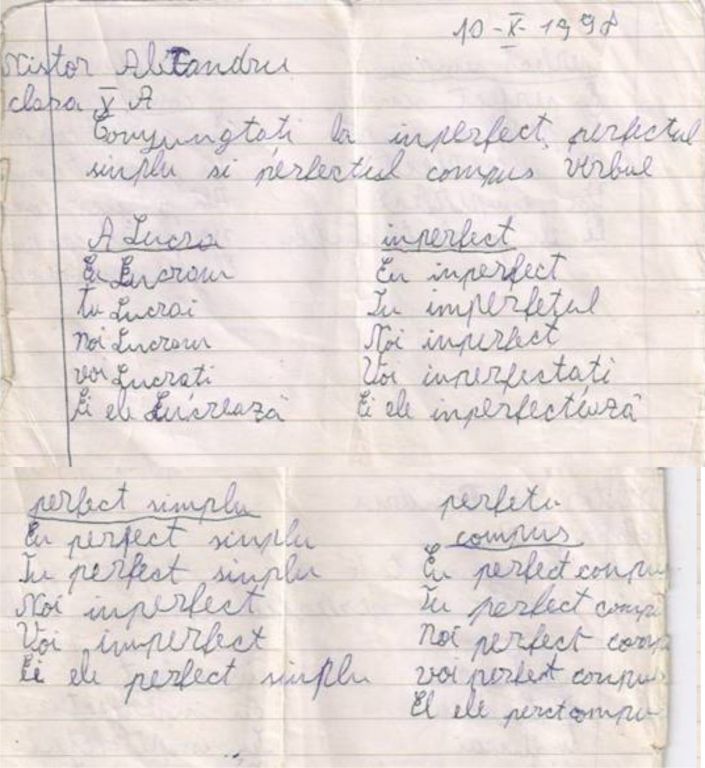 10-X-1998
Nistor Alixandru
clasa V A
Conjungtati la inperfect, perfectul
simplu si perfectul compus verbul
A Lucra
Eu Lucram
tu Lucrai
noi Lucram
voi Lucrati
Ei ele Lucrează
inperfect
Eu inperfect
Tu imperfetul
Noi inperfect
Voi inperfectati
Ei ele inperfectează
perfect simplu
Eu perfect simplu
Tu perfect simplu
Noi inperfect
Voi imperfect
Ei ele perfect simplu
perfetu
compus
Eu perfect conpu
Tu perfect compu
noi perfect comp
voi perfect conpu
El ele perctompu